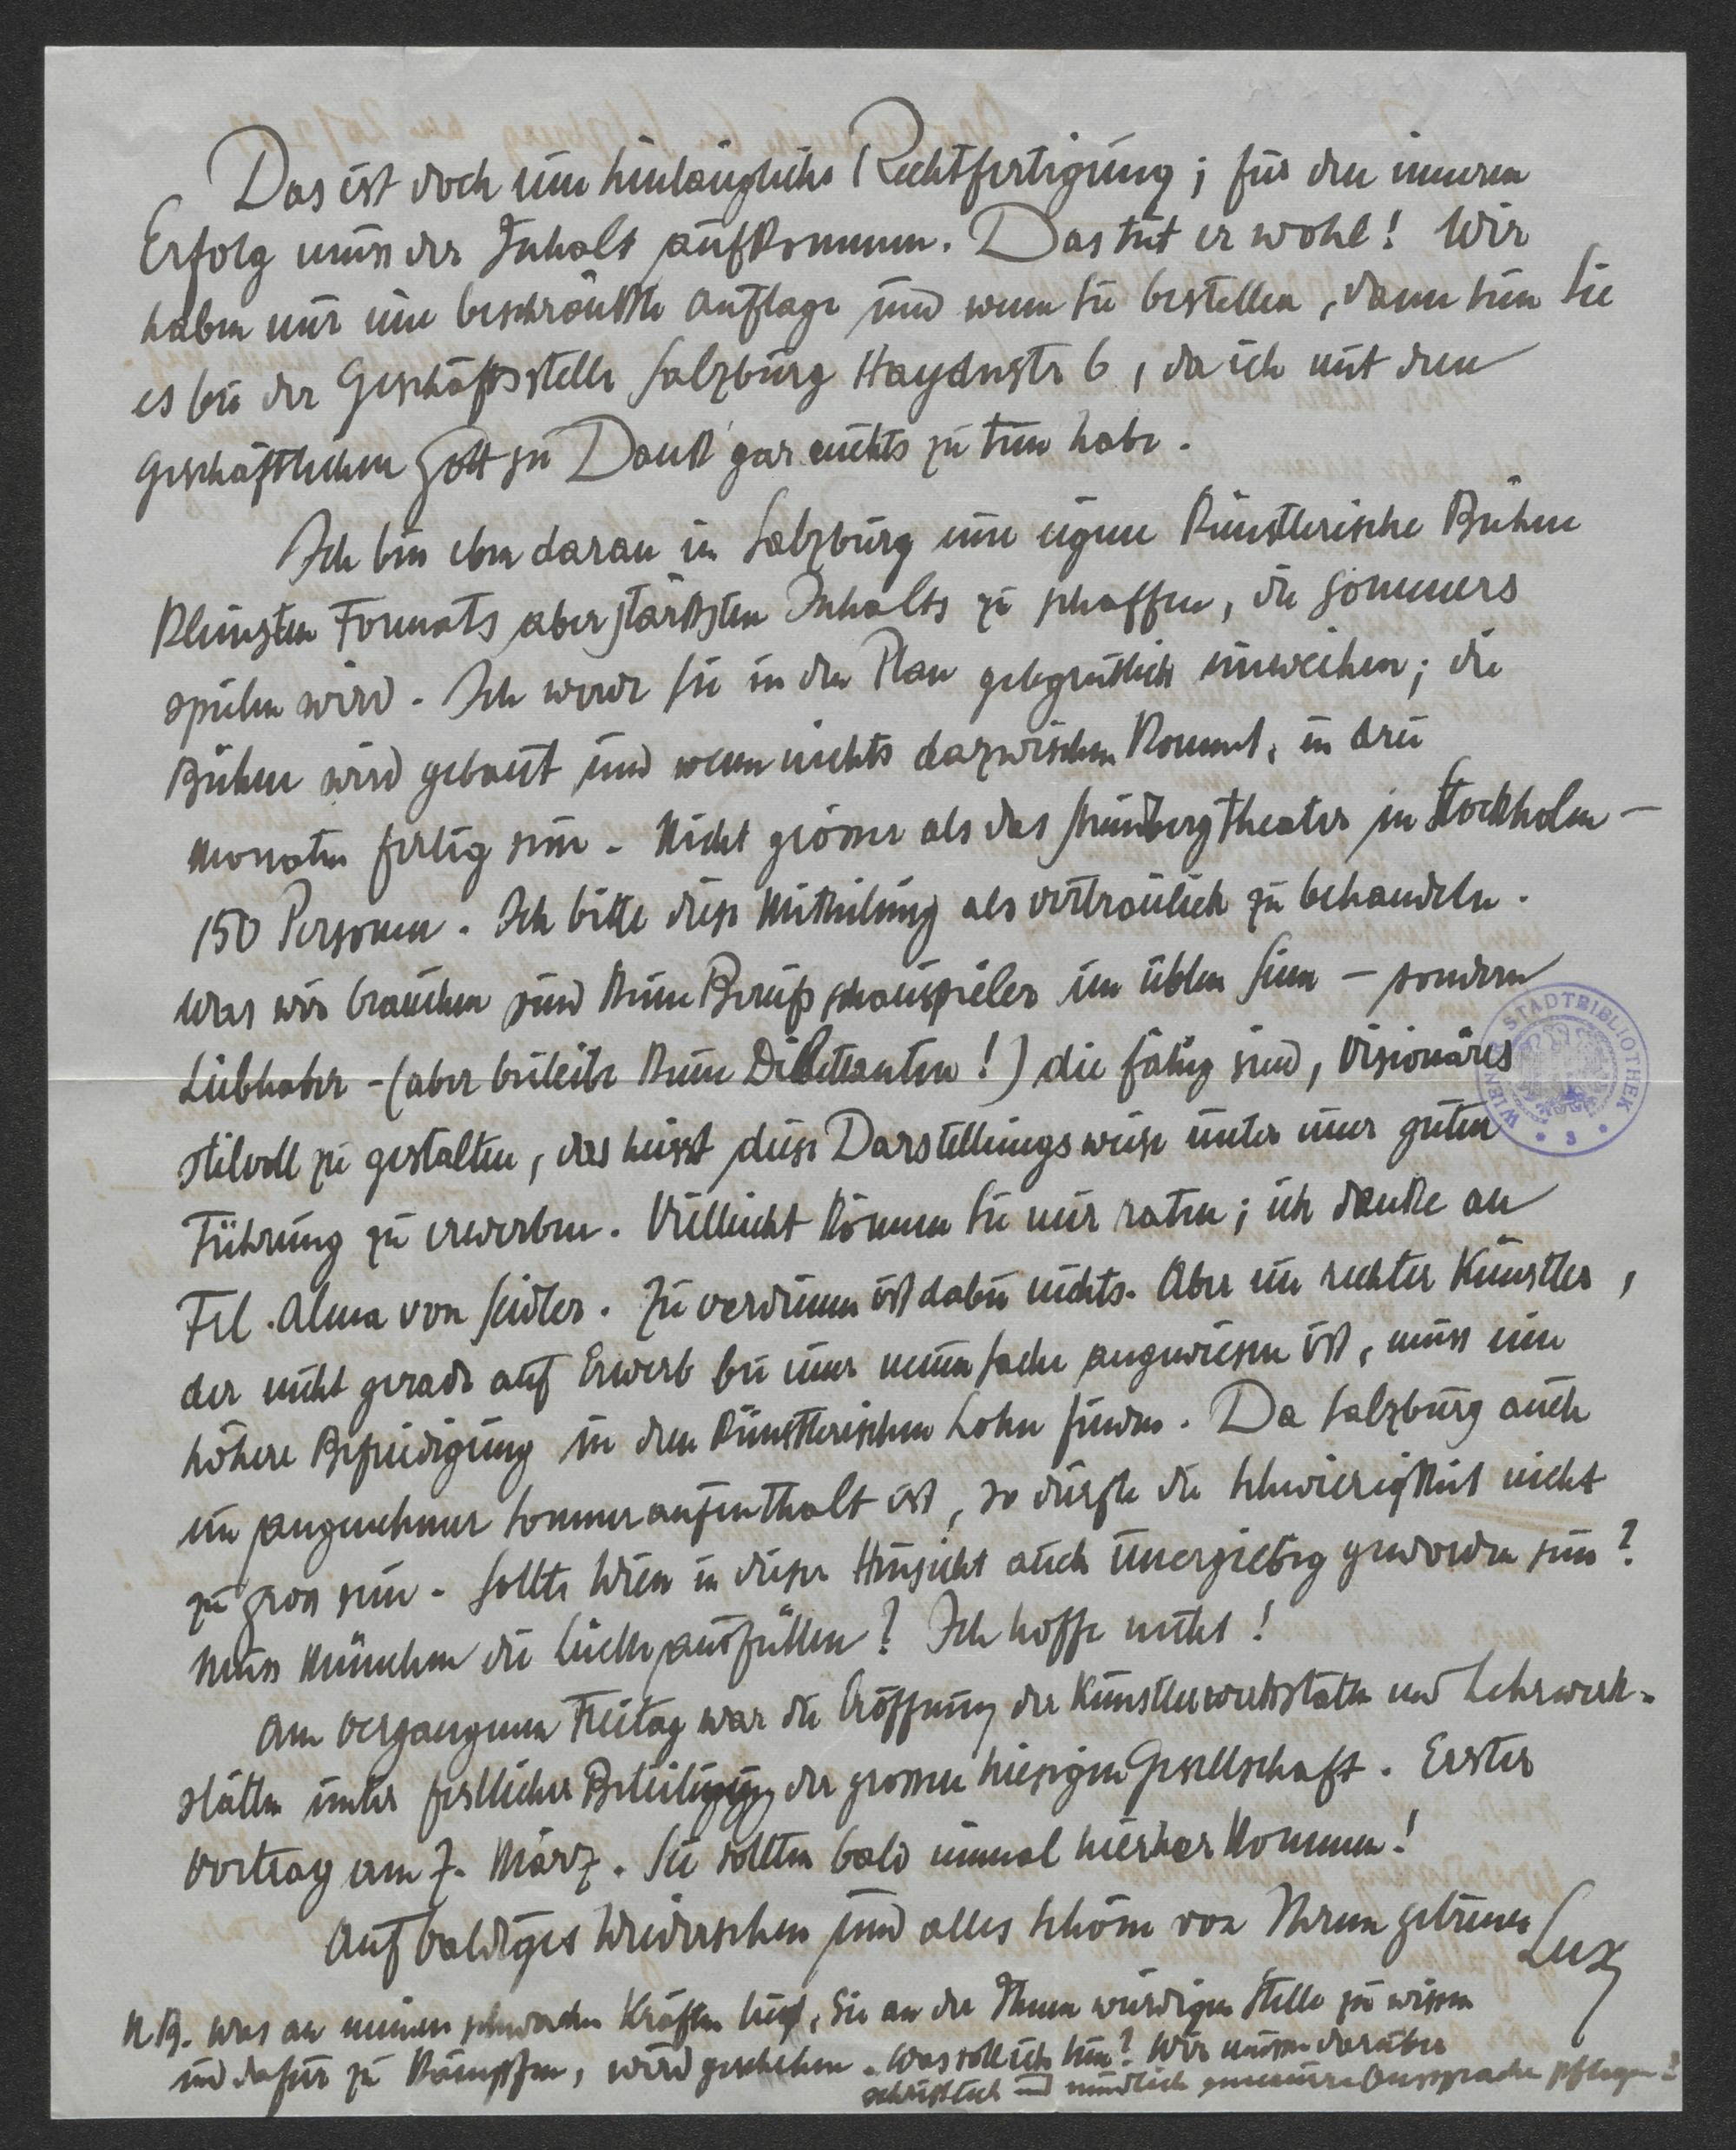 Das ist doch eine hinlängliche Rechtfertigung; für den inneren
Erfolg muss der Inhalt aufkommen. Das tut er wohl! Wir
haben nur eine beschränkte Auflage und wenn Sie bestellen, dann tun Sie
es bei der Geschäftsstelle Salzburg Haydnstr 6, da ich mit dem
geschäftlichen Gott zu Dank gar nichts zu tun habe.
Ich bin eben daran in Salzburg eine eigene künstlerische Bühne
kleinsten Formats aber stärksten Inhalts zu schaffen, die Sommers
spielen wird. Ich werde Sie in den Plan gelegentlich einweihen; die
Bühne wird gebaut und wenn nichts dazwischen kommt, in drei
Monaten fertig sein. Nicht grösser als das Strindbergtheater in Stockholm –
150 Personen. Ich bitte diese Mitteilung als vertraulich zu behandeln.
Was wir brauchen sind keine Berufsschauspieler im üblen Sinn – sondern
Liebhaber – (aber beileibe keine Dilettanten!) die fähig sind, Visionäres
stilvoll zu gestalten, das heisst diese Darstellungsweise unter einer guten
Führung zu erwerben. Vielleicht können Sie mir raten; ich denke an
Frl. Alma von Seidler. Zu verdienen ist dabei nichts. Aber ein rechter Künstler,
der nicht gerade auf Erwerb bei einer neuen Sache angewiesen ist, muss eine
höhere Befriedigung in dem künstlerischen Lohn finden. Da Salzburg auch
ein angenehmer Sommeraufenthalt ist, so dürfte die Schwierigkeit nicht
zu gross sein. Sollte Wien in dieser Hinsicht auch unergiebig geworden sein?
Muss München die Lücke ausfüllen? Ich hoffe nicht!
Am vergangenen Freitag war die Eröffnung der Künstlerwerkstätten und Lehrwerk-
stätten unter festlicher Beteiligung der grossen hiesigen Gesellschaft. Erster
Vortrag am 7. März. Sie sollten bald einmal hierher kommen!
Auf baldiges Wiedersehen und alles Schöne von Ihrem getreuen
Lux
NB. Was an meinen schwachen Kräften liegt, Sie an der Ihnen würdigen Stelle zu wissen
und dafür zu kämpfen, wird geschehen. Was soll ich tun? Wir müssen darüber
schriftlich und mündlich Aussprache pflegen!
WIENER STADTBIBLIOTHEK
3